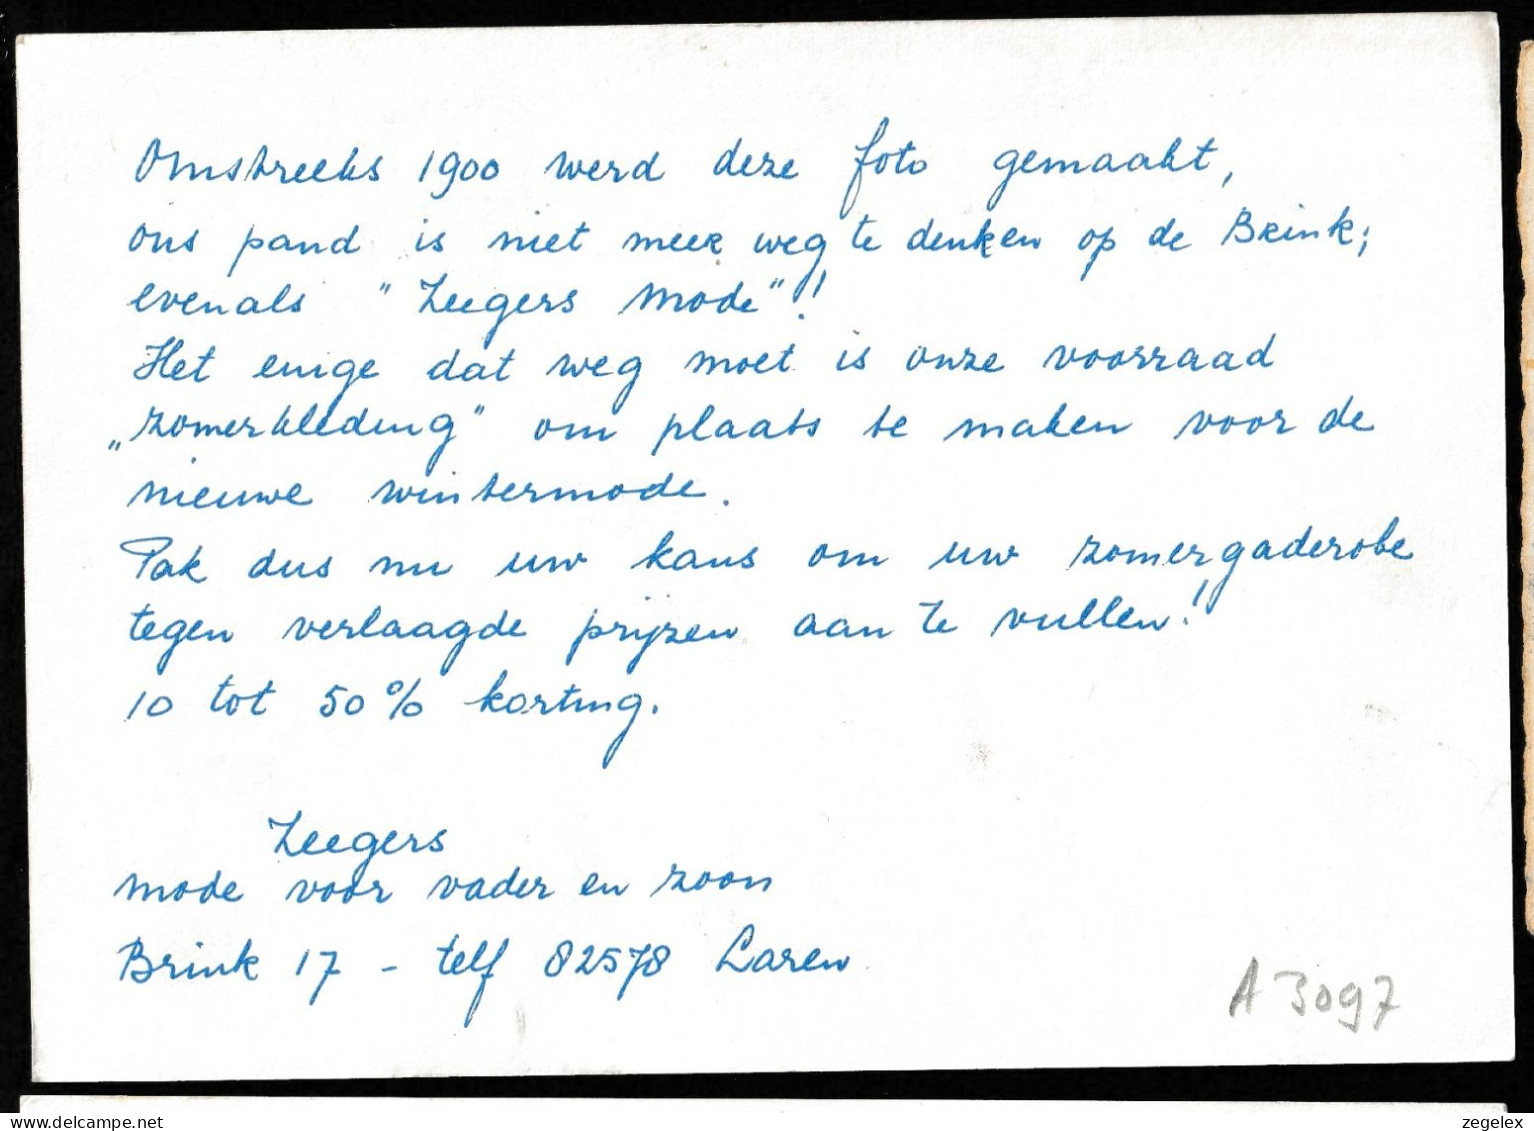 Omstreeks 1900 werd deze foto gemaakt,
ons pand is niet meer weg te denken op de Brink;
evenals "Zeegers Mode"!
Het enige dat weg moet is onze voorraad
„zomerkleding" om plaats te maken voor de
nieuwe wintermode.
Pak dus nu uw kans om uw zomergaderobe
tegen verlaagde prijzen aan te vullen!
10 tot 50% korting.
Zeegers
mode voor vader en zoon
Brink 17 - telf 82578 Laren
A 3097
www.delcampe.net
zegelex